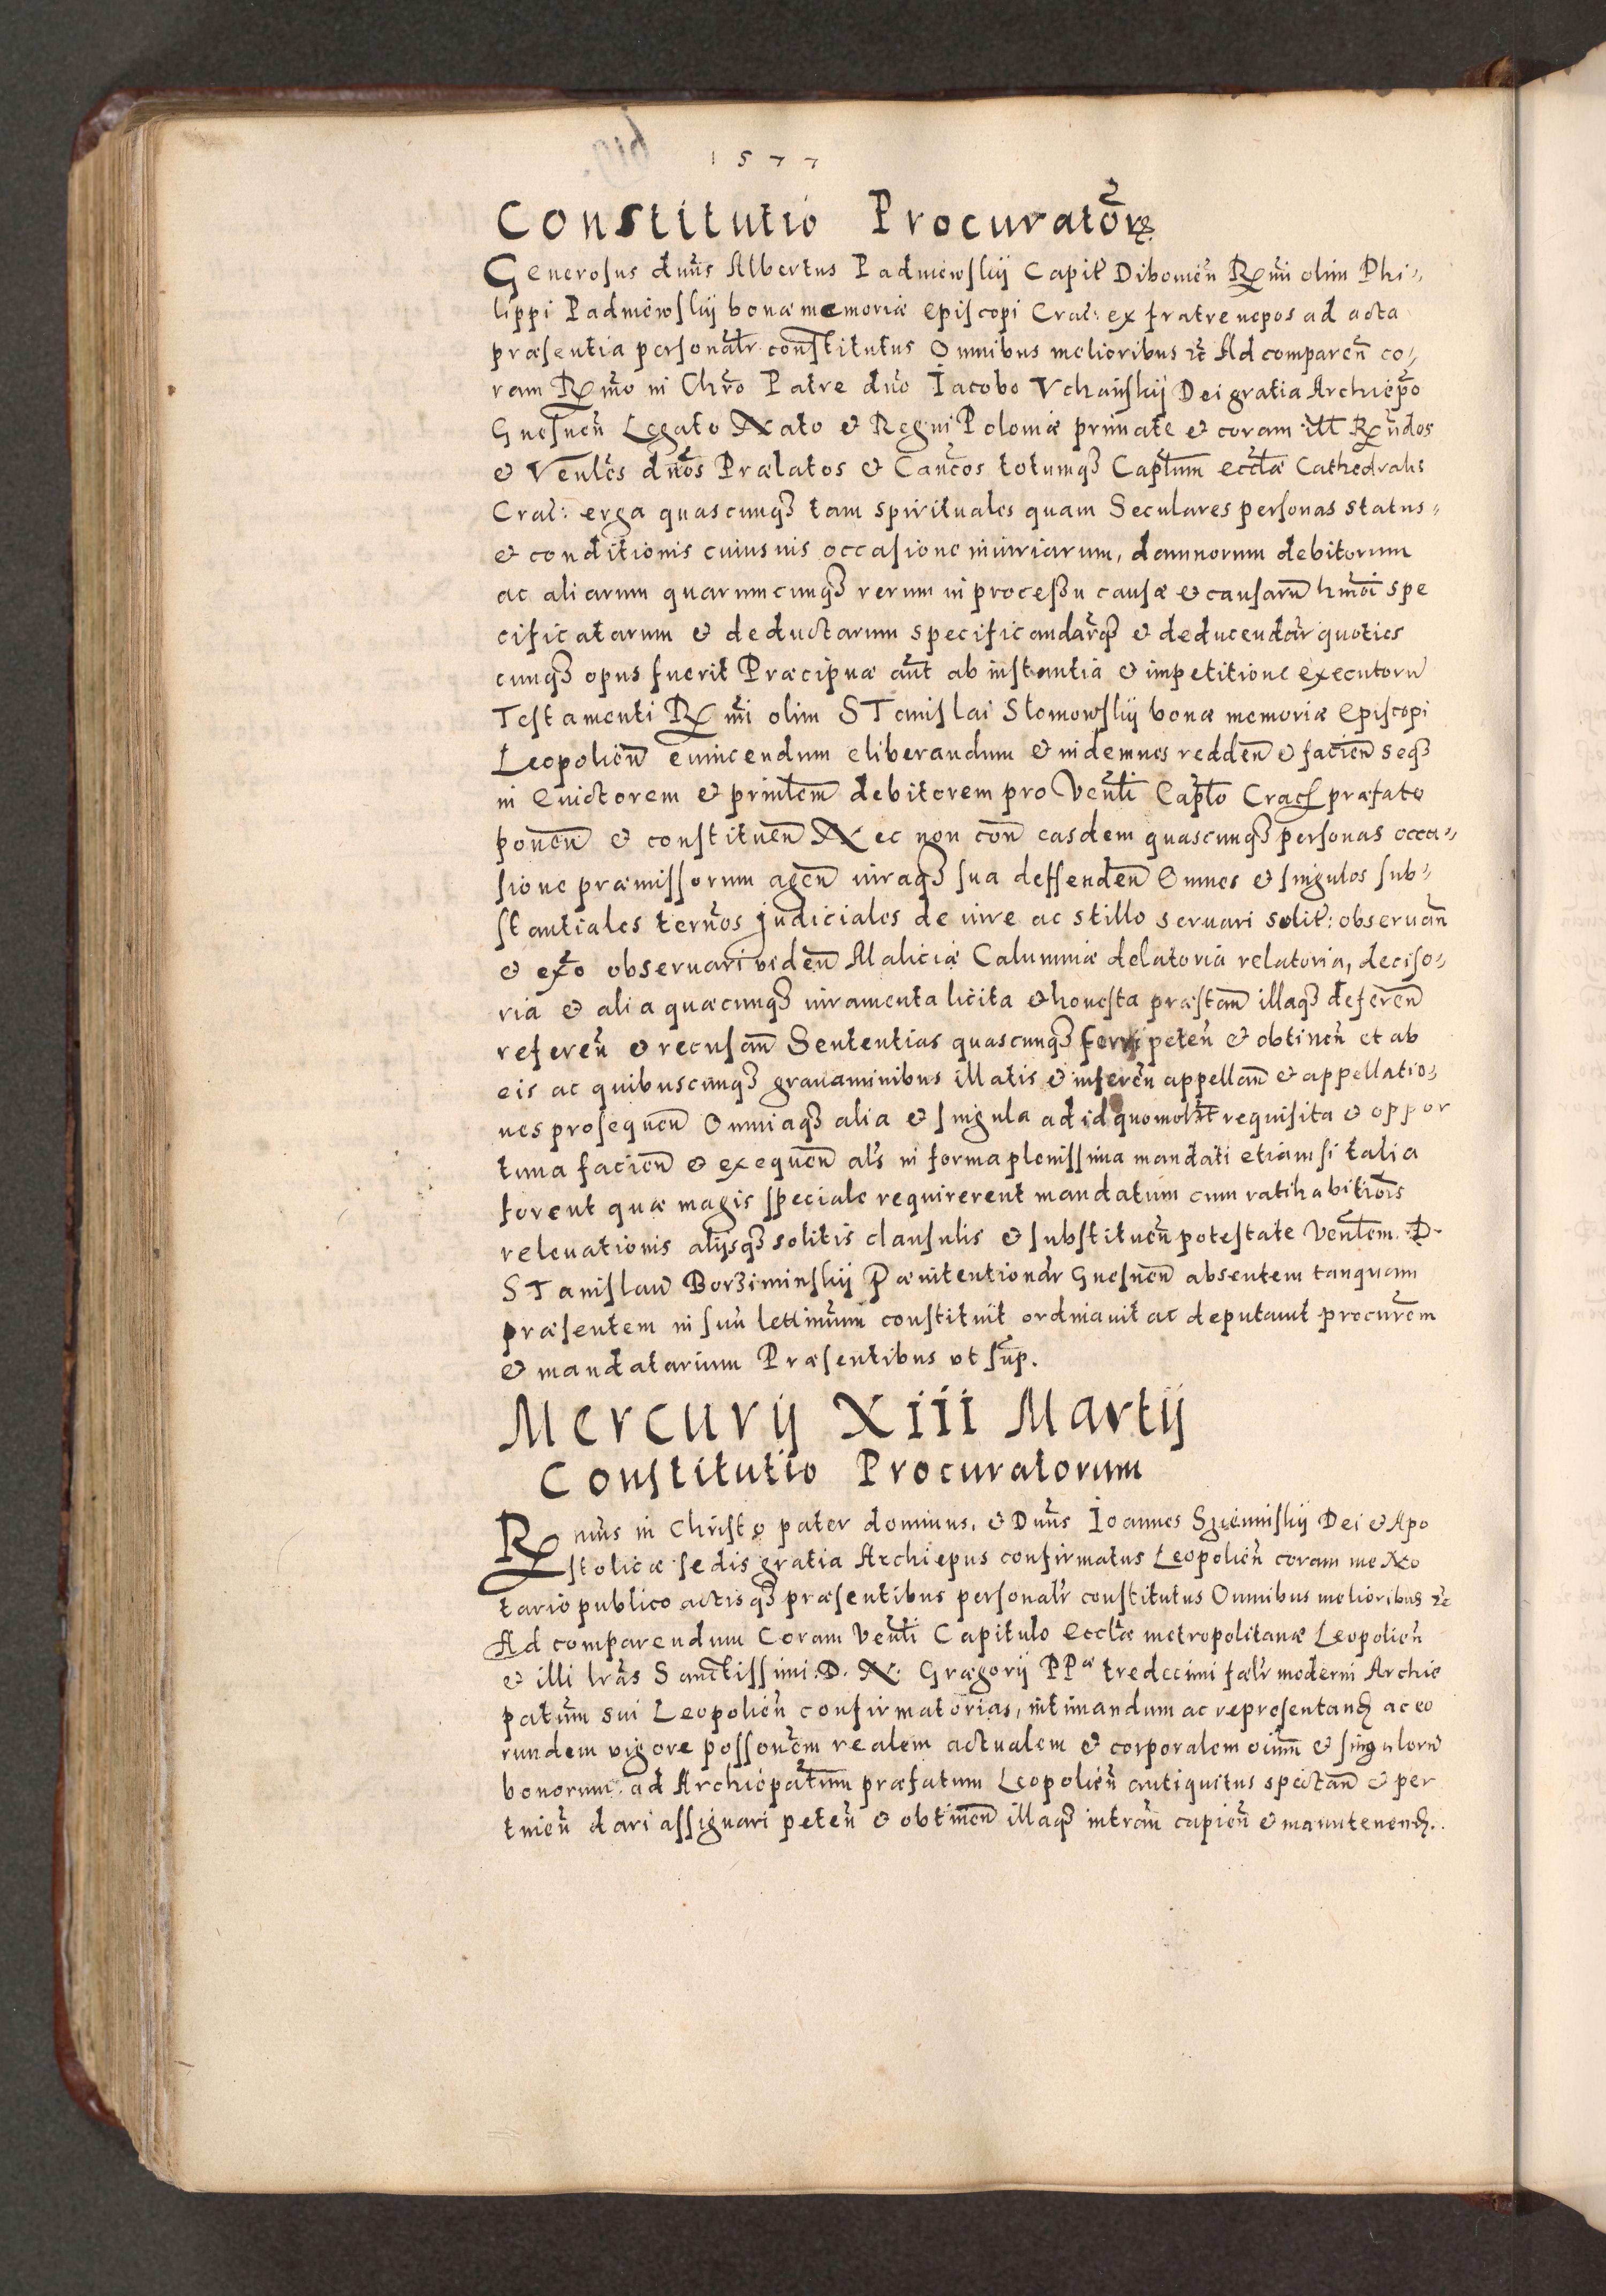 1577
Constitutio Procuratorꝝ
Generosus dnūs Albertus Padniewskij Capit Dibowien̄ Rmi olim Phi-
lippi Padniewskij bonæ memoriæ Episcopi Crac: ex fratre nepos ad acta
præsentia personalr̄ constitutus Omnibus melioribus etc̄ Ad comparen̄ co-
ram Rm̄o in Chrō Patre dnō Iacobo Vchańskij Dei gratia Archiepō
Gnesnen̄ Legato Nato & Regni Poloniæ primate & coram ill̄ Rn̄dos
& Venles dnōs Prælatos & Canc̄os totumqȝ Capl̄um eccl̄æ Cathedralis
Crac: erga quascunqȝ tam spirituales quam Seculares personas status
& conditionis cuiusuis occasione iniuriarum, damnorum debitorum
ac aliarum quarumcunqȝ rerum in processu causæ & causarū hm̄oi spe
cificatarum & deductarum specificandar̄qȝ & deducendar̄ quoties
cunqȝ opus fuerit Præcipuæ aūt ab instantia & impetitione executorū
Testamenti Rmi olim STanislai Slomowskij bonæ memoriæ Episcopi
Leopolien̄ euincendum eliberandum & indemnes redden̄ & facien̄ seqȝ
in Euictorem & prinl̄em debitorem pro Venl̄i Capl̄o Crac præfato
ponen̄ & constituen̄ Nec non con̄ easdem quascunqȝ personas occa-
sione præmissorum agen̄ iuraqȝ sua deffenden̄ Omnes & singulos sub-
stantiales termos judiciales de iure ac stillo seruari solit: obseruan̄
& ex̄o obseruari viden̄ Maliciæ Calumniæ delatoria relatoria, deciso-
ria & alia quæcunqȝ iuramenta licita & honesta præstan̄ illaqȝ deferen̄
referen̄ & recusan̄ Sententias quascunqȝ ferri peten̄ & obtinen̄ et ab
eis ac quibuscunqȝ grauaminibus illatis & inferen̄ appellan̄ & appellatio-
nes prosequen̄ Omniaqȝ alia & singula ad id quomolt̄ requisita & oppor
tuna facien̄ & exequen̄ al̄s in forma plenissima mandati etiam si talia
forent quæ magis speciale requirerent mandatum cum ratihabitiōis
releuationis alijsqȝ solitis clausulis & substituen̄ potestate Venl̄em D.
STanislaū Borziminskij Pœnitentionar Gnesnen̄ absentem tanquam
præsentem in suū lettimum constituit ordinauit ac deputauit procurēm
& mandatarium Præsentibus vt sup̄.
Mercurij Xiii Martij
Constitutio Procuratorum
Rmūs in Christo pater dominus, & Dnūs Ioannes Szieninskij Dei & Apo
stolicæ sedis gratia Archiepus confirmatus Leopolien̄ coram me No
tario publico actisqȝ præsentibus personalr̄ constitutus Omnibus melioribus etc̄
Ad comparendum Coram Venl̄i Capitulo Eccl̄æ metropolitanæ Leopolien̄
& illi lrās Sanctissimi D. N. Grægorij PPæ tredecimi fælr̄ moderni Archie
patum̄ sui Leopolien̄ confirmatorias, intimandum ac representand ac eo
rundem vigore possonēm realem actualem & corporalem oium̄ & singulorū
bonorum ad Archiepatum̄ præfatum Leopolien̄ antiquitus spectan̄ & per
tinen̄ dari assignari peten̄ & obtinen̄ illaqȝ intran̄ capien̄ & manutenend.